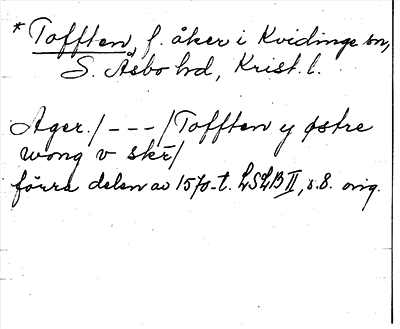 * Tofften, f. åker i Kvidinge sn,
S. Åsbo hd, Krist. l.
Ager. / - - - / Tofften y østre
wong v skr̄ /
förra delen av 1570-t. LSLB II, s. 8. orig.